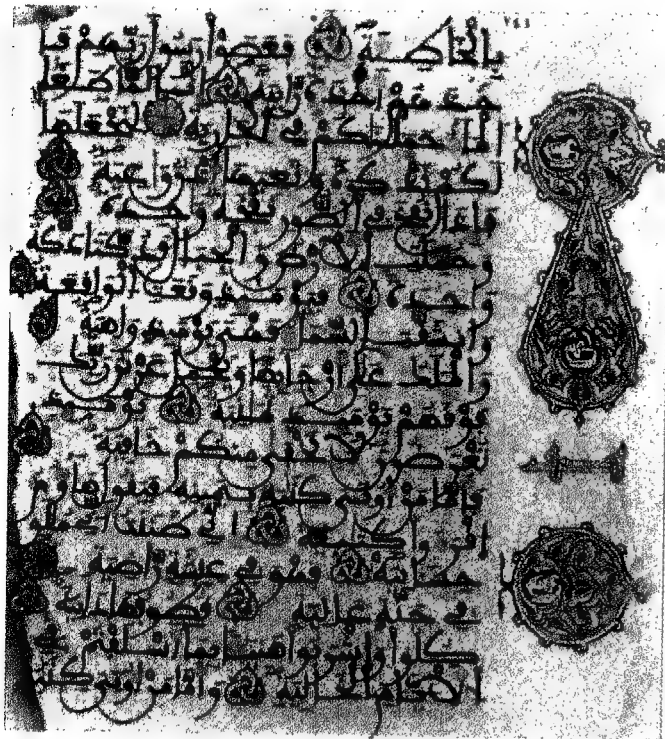 بالخاطئة فعصوا رسول ربهم فأ
خذهم أخذة رابية إنا لما طغا
الما حملنكم في الجارية لنجعلها
لكم تذكرة وتعيها أذن واعية
فإذا نفخ في الصور نفخة وحدة
وحملت الأرض والجبال فدكتا دكة
وحدة فيومئذ وقعت الواقعة
وانشقت السماء فهي يومئذ واهية
والملك على أرجائها ويحمل عرش ربك
فوقهم يومئذ ثمنية يومئذ
تعرضون لا تخفى منكم خافية
فأما من أوتي كتبه بيمينه فيقول هاؤم
اقرءوا كتبيه إني ظننت أني ملق
حسابيه فهو في عيشة راضية
في جنة عالية قطوفها دانية
كلوا واشربوا هنيئا بما أسلفتم في
الأيام الخالية وأما من أوتي كتبه